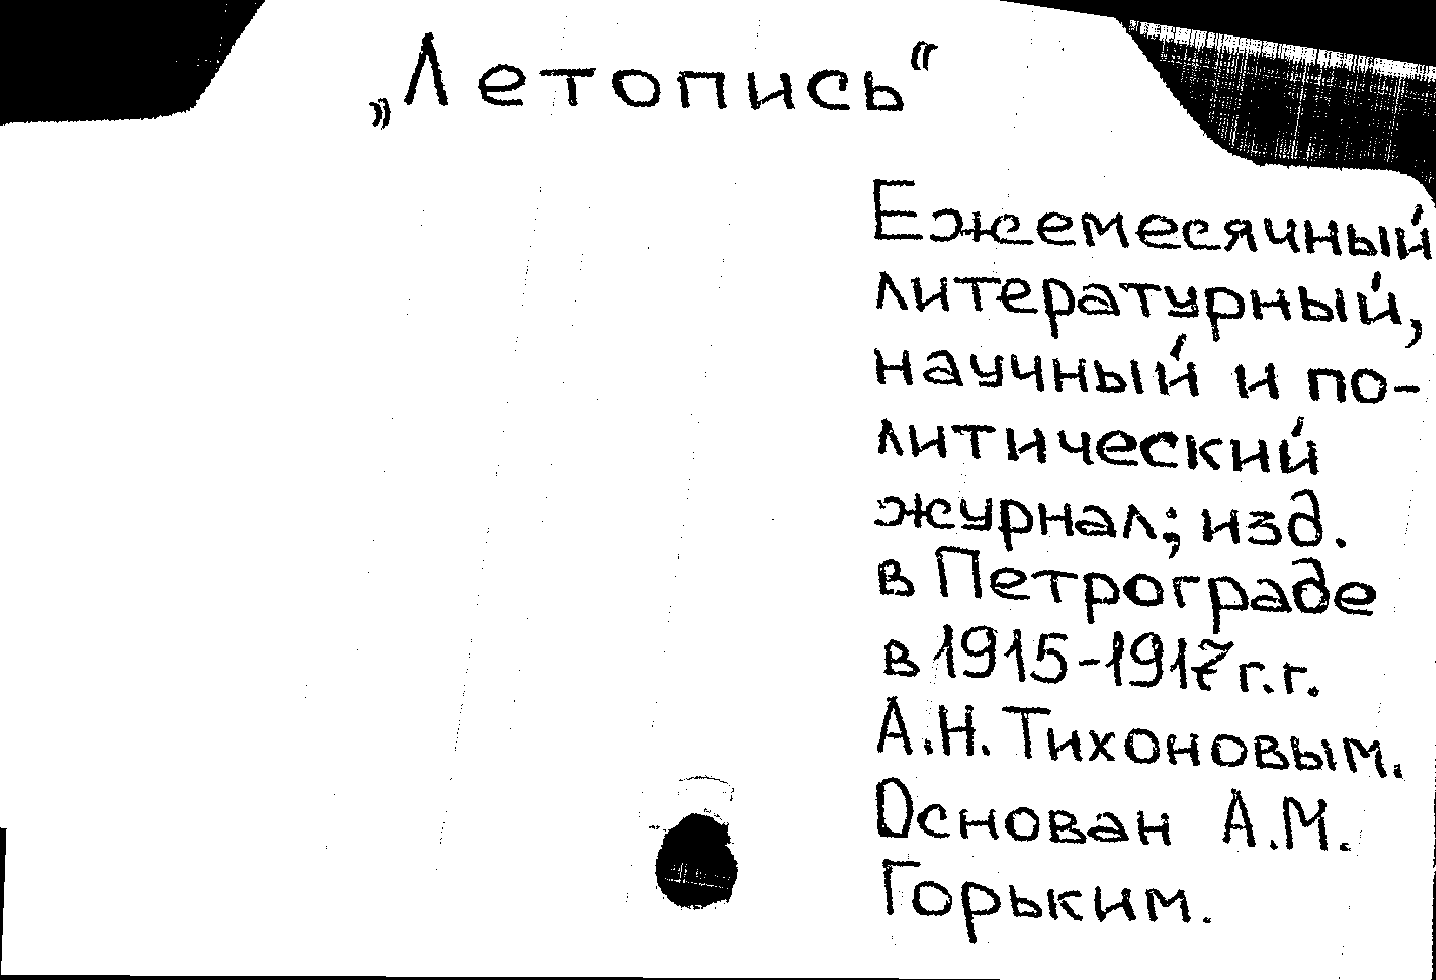 „Летопись“
Ежемесячный
литературный,
научный и по-
литический
журнал; изд.
в Петрограде
в 1915-1917 г.г.
А.Н. Тихоновым.
Основан А.М.
Горьким.